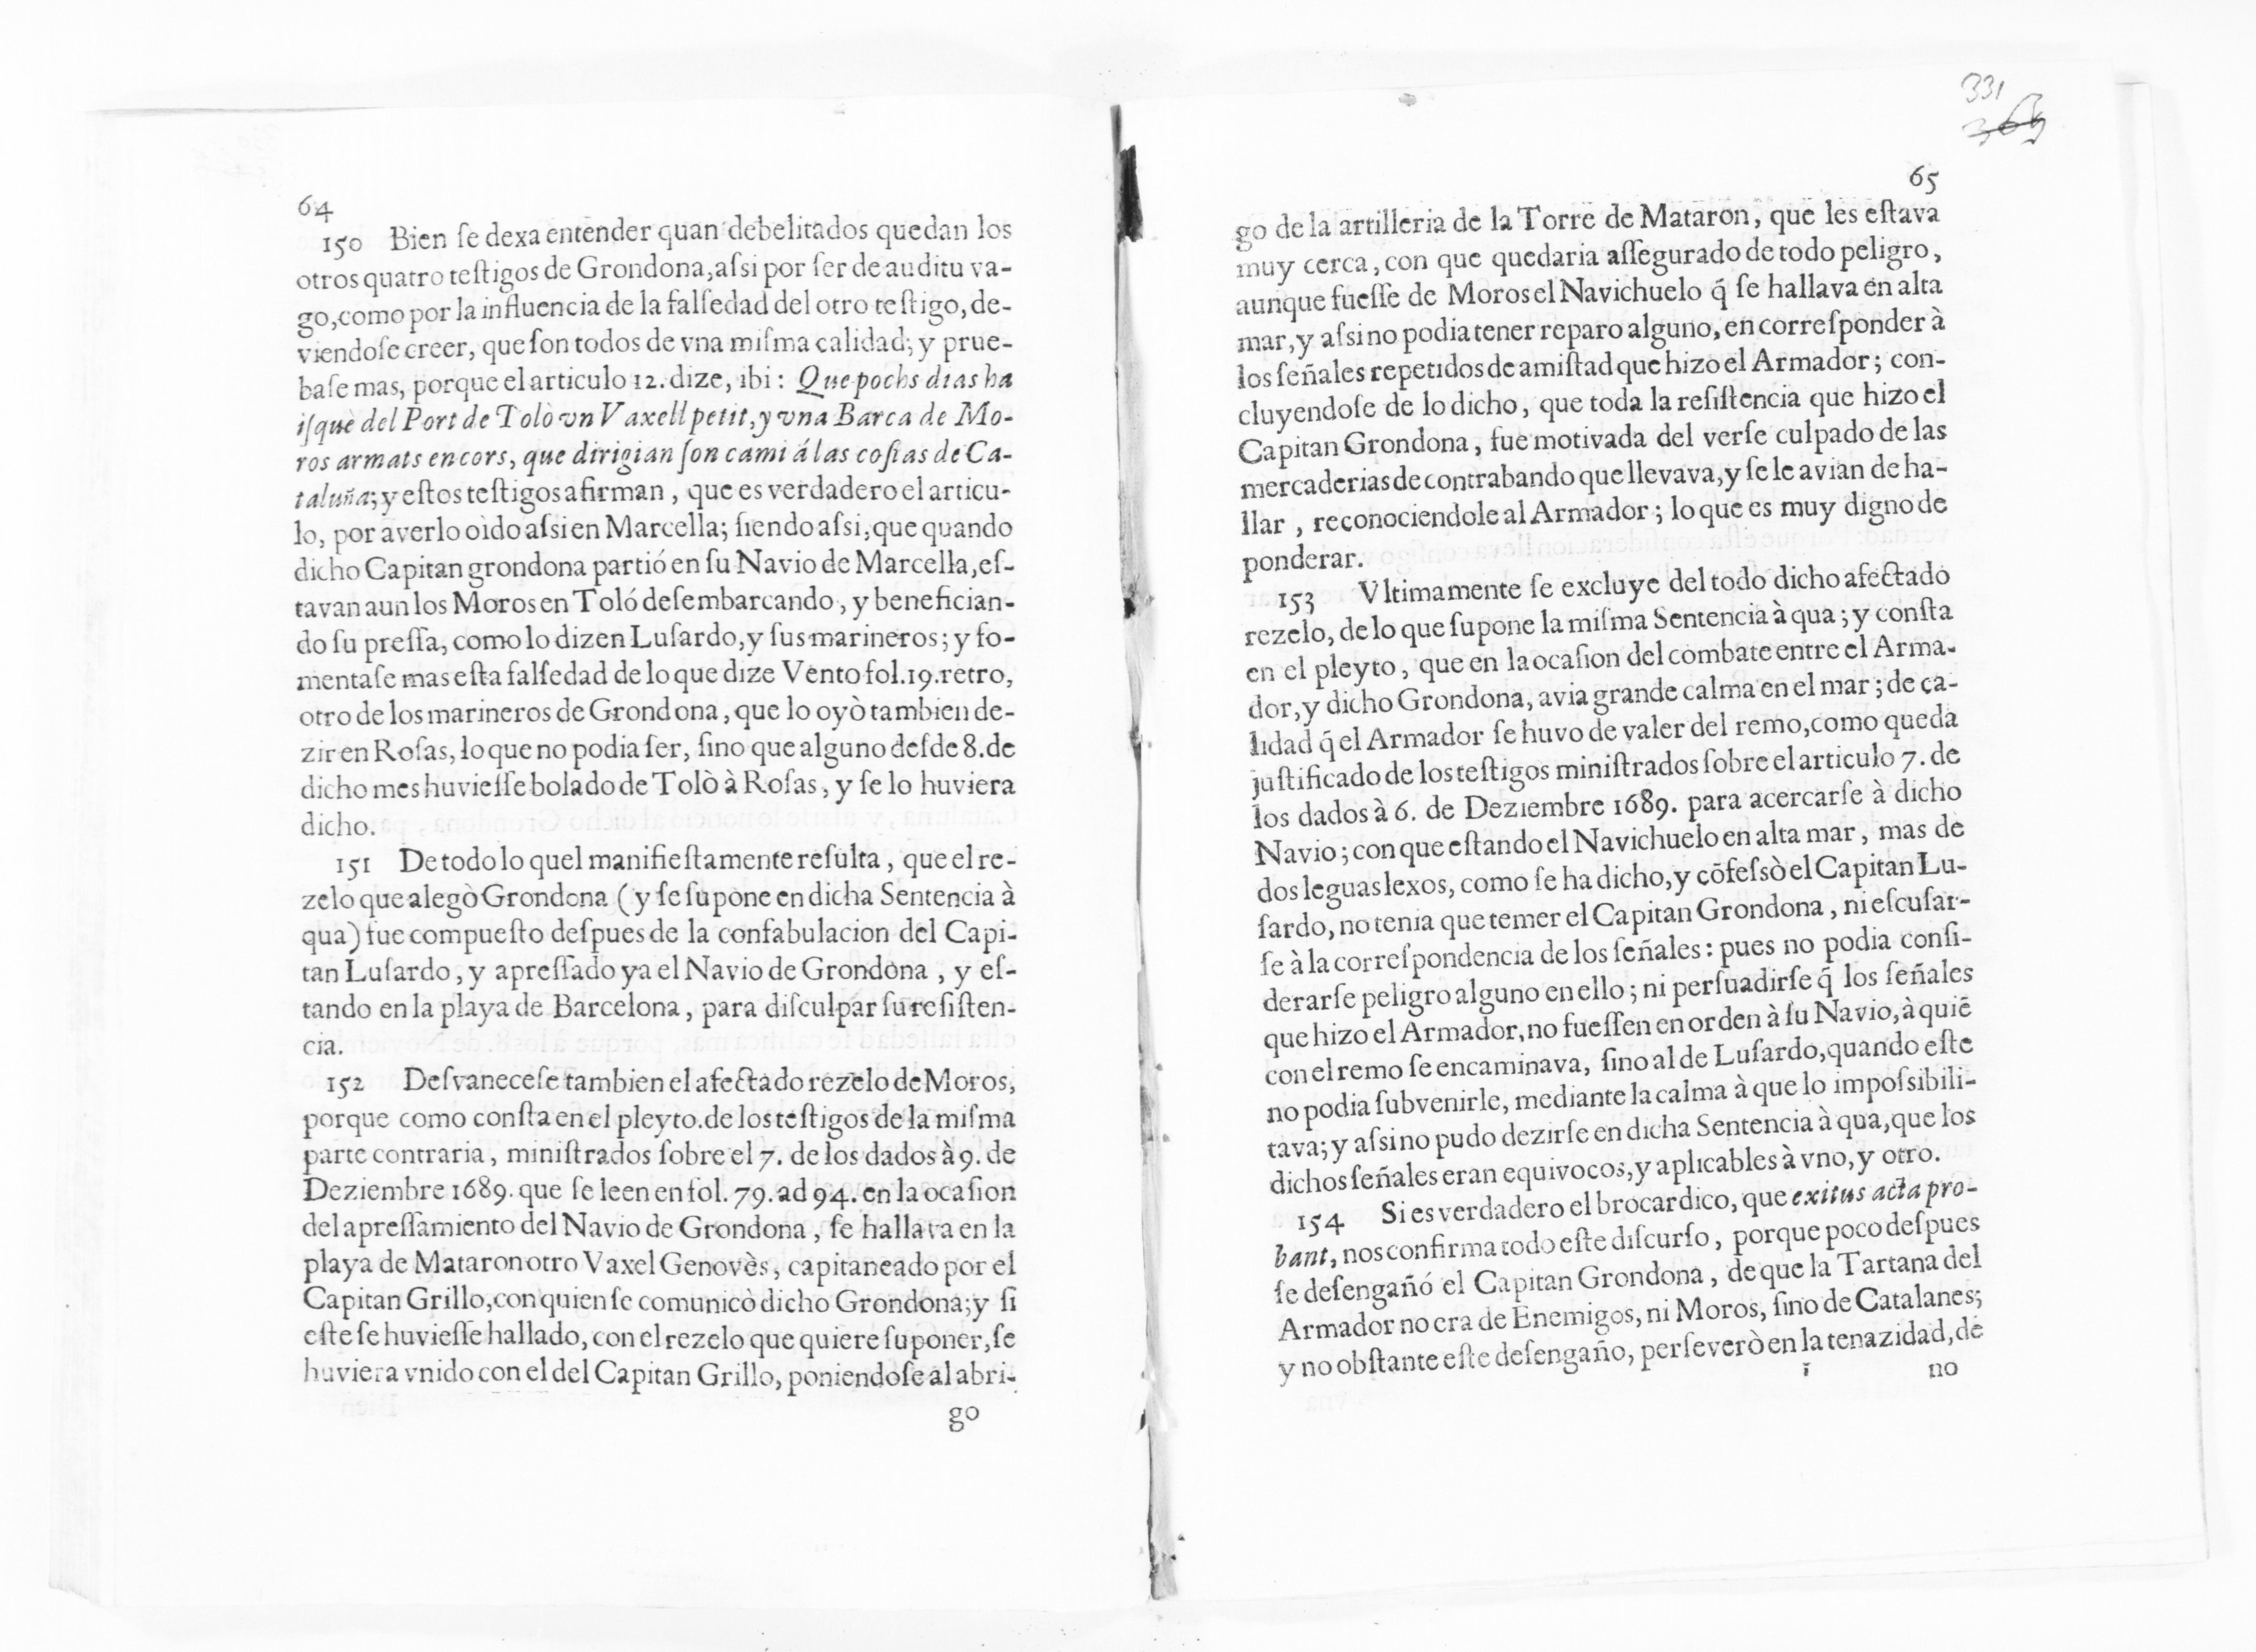 64
150 Bien ſe dexa entender quan debelitados quedan los
otros quatro teſtigos de Grondona, aſsi por ſer de auditu va-
go, como por la influencia de la falſedad del otro teſtigo, de-
viendoſe creer, que ſon todos de vna miſma calidad; y prue-
baſe mas, porque el articulo 12. dize, ibi: Que pochs dias ha
iſquè del Port de Tolò vn Vaxell petit, y vna Barca de Mo-
ros armats en cors, que dirigian ſon cami á las coſtas de Ca-
taluña; y eſtos teſtigos afirman, que es verdadero el articu-
lo, por averlo oìdo aſsi en Marcella; ſiendo aſsi, que quando
dicho Capitan grondona partió en ſu Navio de Marcella, eſ-
tavan aun los Moros en Toló deſembarcando, y benefician-
do ſu preſſa, como lo dizen Luſardo, y ſus marineros; y fo-
mentaſe mas eſta falſedad de lo que dize Vento fol. 19. retro,
otro de los marineros de Grondona, que lo oyò tambien de-
zir en Roſas, lo que no podia ſer, ſino que alguno deſde 8. de
dicho mes huvieſſe bolado de Tolò à Roſas, y ſe lo huviera
dicho.
151 De todo lo quel manifieſtamente reſulta, que el re-
zelo que alegò Grondona (y ſe ſupone en dicha Sentencia à
qua) fue compueſto deſpues de la confabulacion del Capi-
tan Luſardo, y apreſſado ya el Navio de Grondona, y eſ-
tando en la playa de Barcelona, para diſculpar ſu reſiſten-
cia.
152 Deſvaneceſe tambien el afectado rezelo de Moros,
porque como conſta en el pleyto. de los teſtigos de la miſma
parte contraria, miniſtrados ſobre el 7. de los dados à 9. de
Deziembre 1689. que ſe leen en fol. 79. ad 94. en la ocaſion
del apreſſamiento del Navio de Grondona, ſe hallava en la
playa de Mataron otro Vaxel Genovès, capitaneado por el
Capitan Grillo, con quien ſe comunicò dicho Grondona; y ſi
eſte ſe huvieſſe hallado, con el rezelo que quiere ſuponer, ſe
huviera vnido con el del Capitan Grillo, poniendoſe al abri-
go
331
369
65
go de la artilleria de la Torre de Mataron, que les eſtava
muy cerca, con que quedaria aſſegurado de todo peligro,
aunque fueſſe de Moros el Navichuelo q̃ ſe hallava en alta
mar, y aſsi no podia tener reparo alguno, en correſponder à
los ſeñales repetidos de amiſtad que hizo el Armador; con-
cluyendoſe de lo dicho, que toda la reſiſtencia que hizo el
Capitan Grondona, fue motivada del verſe culpado de las
mercaderias de contrabando que llevava, y ſe le avian de ha-
llar, reconociendole al Armador; lo que es muy digno de
ponderar.
153 Vltimamente ſe excluye del todo dicho afectado
rezelo, de lo que ſupone la miſma Sentencia à qua; y conſta
en el pleyto, que en la ocaſion del combate entre el Arma-
dor, y dicho Grondona, avia grande calma en el mar; de ca-
lidad q̃ el Armador ſe huvo de valer del remo, como queda
juſtificado de los teſtigos miniſtrados ſobre el articulo 7. de
los dados à 6. de Deziembre 1689. para acercarſe à dicho
Navio; con que eſtando el Navichuelo en alta mar, mas de
dos leguas lexos, como ſe ha dicho, y cõfeſsò el Capitan Lu-
ſardo, no tenia que temer el Capitan Grondona, ni eſcuſar-
ſe à la correſpondencia de los ſeñales: pues no podia conſi-
derarſe peligro alguno en ello; ni perſuadirſe q̃ los ſeñales
que hizo el Armador, no fueſſen en orden à ſu Navio, à quiẽ
con el remo ſe encaminava, ſino al de Luſardo, quando eſte
no podia ſubvenirle, mediante la calma à que lo impoſsibili-
tava; y aſsi no pudo dezirſe en dicha Sentencia à qua, que los
dichos ſeñales eran equivocos, y aplicables à vno, y otro.
154 Si es verdadero el brocardico, que exitus acta pro-
bant, nos confirma todo eſte diſcurſo, porque poco deſpues
ſe deſengañó el Capitan Grondona, de que la Tartana del
Armador no era de Enemigos, ni Moros, ſino de Catalanes;
y no obſtante eſte deſengaño, perſeverò en la tenazidad, de
i no